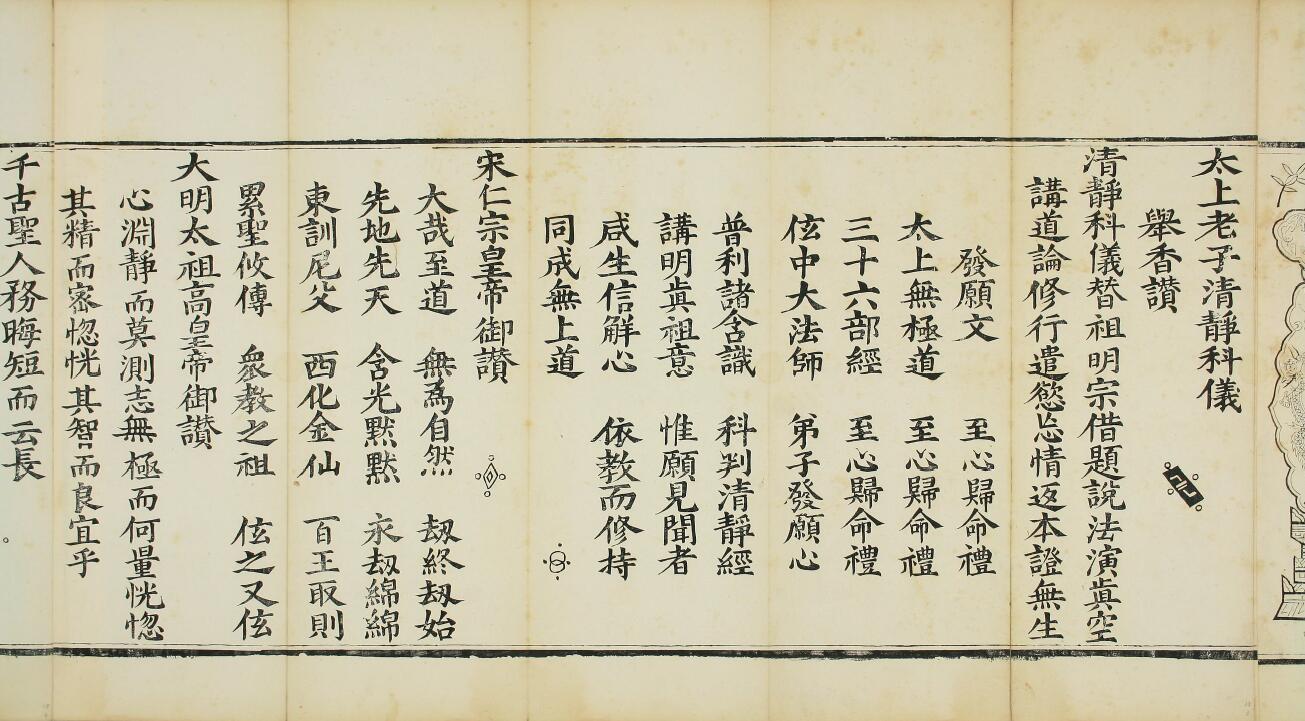 太上老子清靜科儀
舉香讃
清靜科儀替祖明宗借題説法演眞空
講道論修行遣慾忘情返本證無生
發願文　至心歸命禮
太上無極道　至心歸命禮
三十六部經　至心歸命禮
伭中大法師　弟子發願心
普利諸含識　科判清靜經
講明眞祖意　惟願見聞者
咸生信解心　依教而修持
同成無上道
宋仁宗皇帝御讃
大哉至道　無為自然　刼終刼始
先地先天　含光默默　永刼綿綿
東訓尼父　西化金仙　百王取則
累聖攸傳　衆教之祖　伭之又伭
大明太祖高皇帝御讃
心淵靜而莫測志無極而何量恍惚
其精而宻惚恍其智而良宜乎
千古聖人務晦短而云長